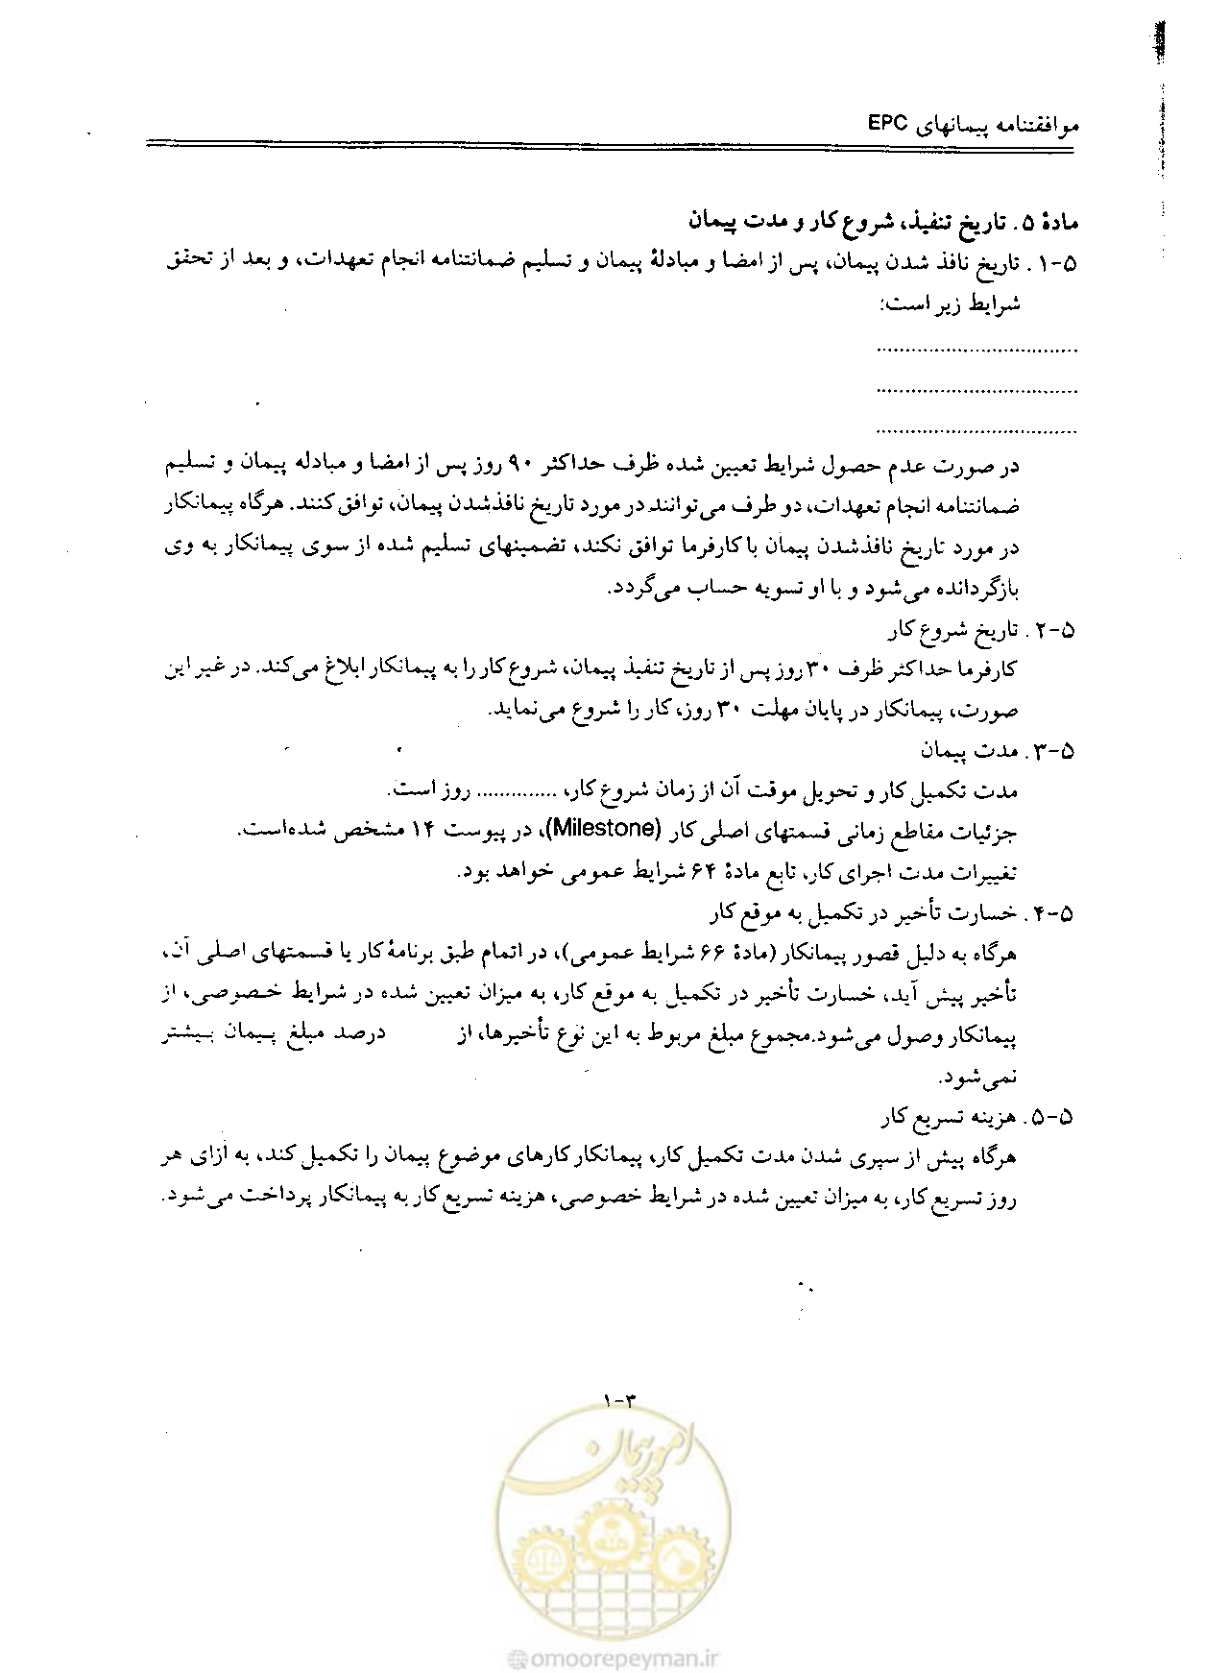 موافقتنامه پیمانهای EPC
مادهٔ ۵. تاریخ تنفیذ، شروع کار و مدت پیمان
۵-۱. تاریخ نافذ شدن پیمان، پس از امضا و مبادلهٔ پیمان و تسلیم ضمانتنامه انجام تعهدات، و بعد از تحقق
شرایط زیر است:
....................................
....................................
....................................
در صورت عدم حصول شرایط تعیین شده ظرف حداکثر ۹۰ روز پس از امضا و مبادله پیمان و تسلیم
ضمانتنامه انجام تعهدات، دو طرف می‌توانند در مورد تاریخ نافذشدن پیمان، توافق کنند. هرگاه پیمانکار
در مورد تاریخ نافذشدن پیمان با کارفرما توافق نکند، تضمینهای تسلیم شده از سوی پیمانکار به وی
بازگردانده می‌شود و با او تسویه حساب می‌گردد.
۵-۲. تاریخ شروع کار
کارفرما حداکثر ظرف ۳۰ روز پس از تاریخ تنفیذ پیمان، شروع کار را به پیمانکار ابلاغ می‌کند. در غیر این
صورت، پیمانکار در پایان مهلت ۳۰ روز، کار را شروع می‌نماید.
۵-۳. مدت پیمان
مدت تکمیل کار و تحویل موقت آن از زمان شروع کار، .............. روز است.
جزئیات مقاطع زمانی قسمتهای اصلی کار (Milestone)، در پیوست ۱۴ مشخص شده‌است.
تغییرات مدت اجرای کار، تابع مادهٔ ۶۴ شرایط عمومی خواهد بود.
۵-۴. خسارت تأخیر در تکمیل به موقع کار
هرگاه به دلیل قصور پیمانکار (مادهٔ ۶۶ شرایط عمومی)، در اتمام طبق برنامهٔ کار یا قسمتهای اصلی آن،
تأخیر پیش آید، خسارت تأخیر در تکمیل به موقع کار، به میزان تعیین شده در شرایط خصوصی، از
پیمانکار وصول می‌شود.مجموع مبلغ مربوط به این نوع تأخیرها، از درصد مبلغ پیمان بیشتر
نمی‌شود.
۵-۵. هزینه تسریع کار
هرگاه پیش از سپری شدن مدت تکمیل کار، پیمانکار کارهای موضوع پیمان را تکمیل کند، به ازای هر
روز تسریع کار، به میزان تعیین شده در شرایط خصوصی، هزینه تسریع کار به پیمانکار پرداخت می‌شود.
۱-۳
امور پیمان
@omoorepeyman.ir